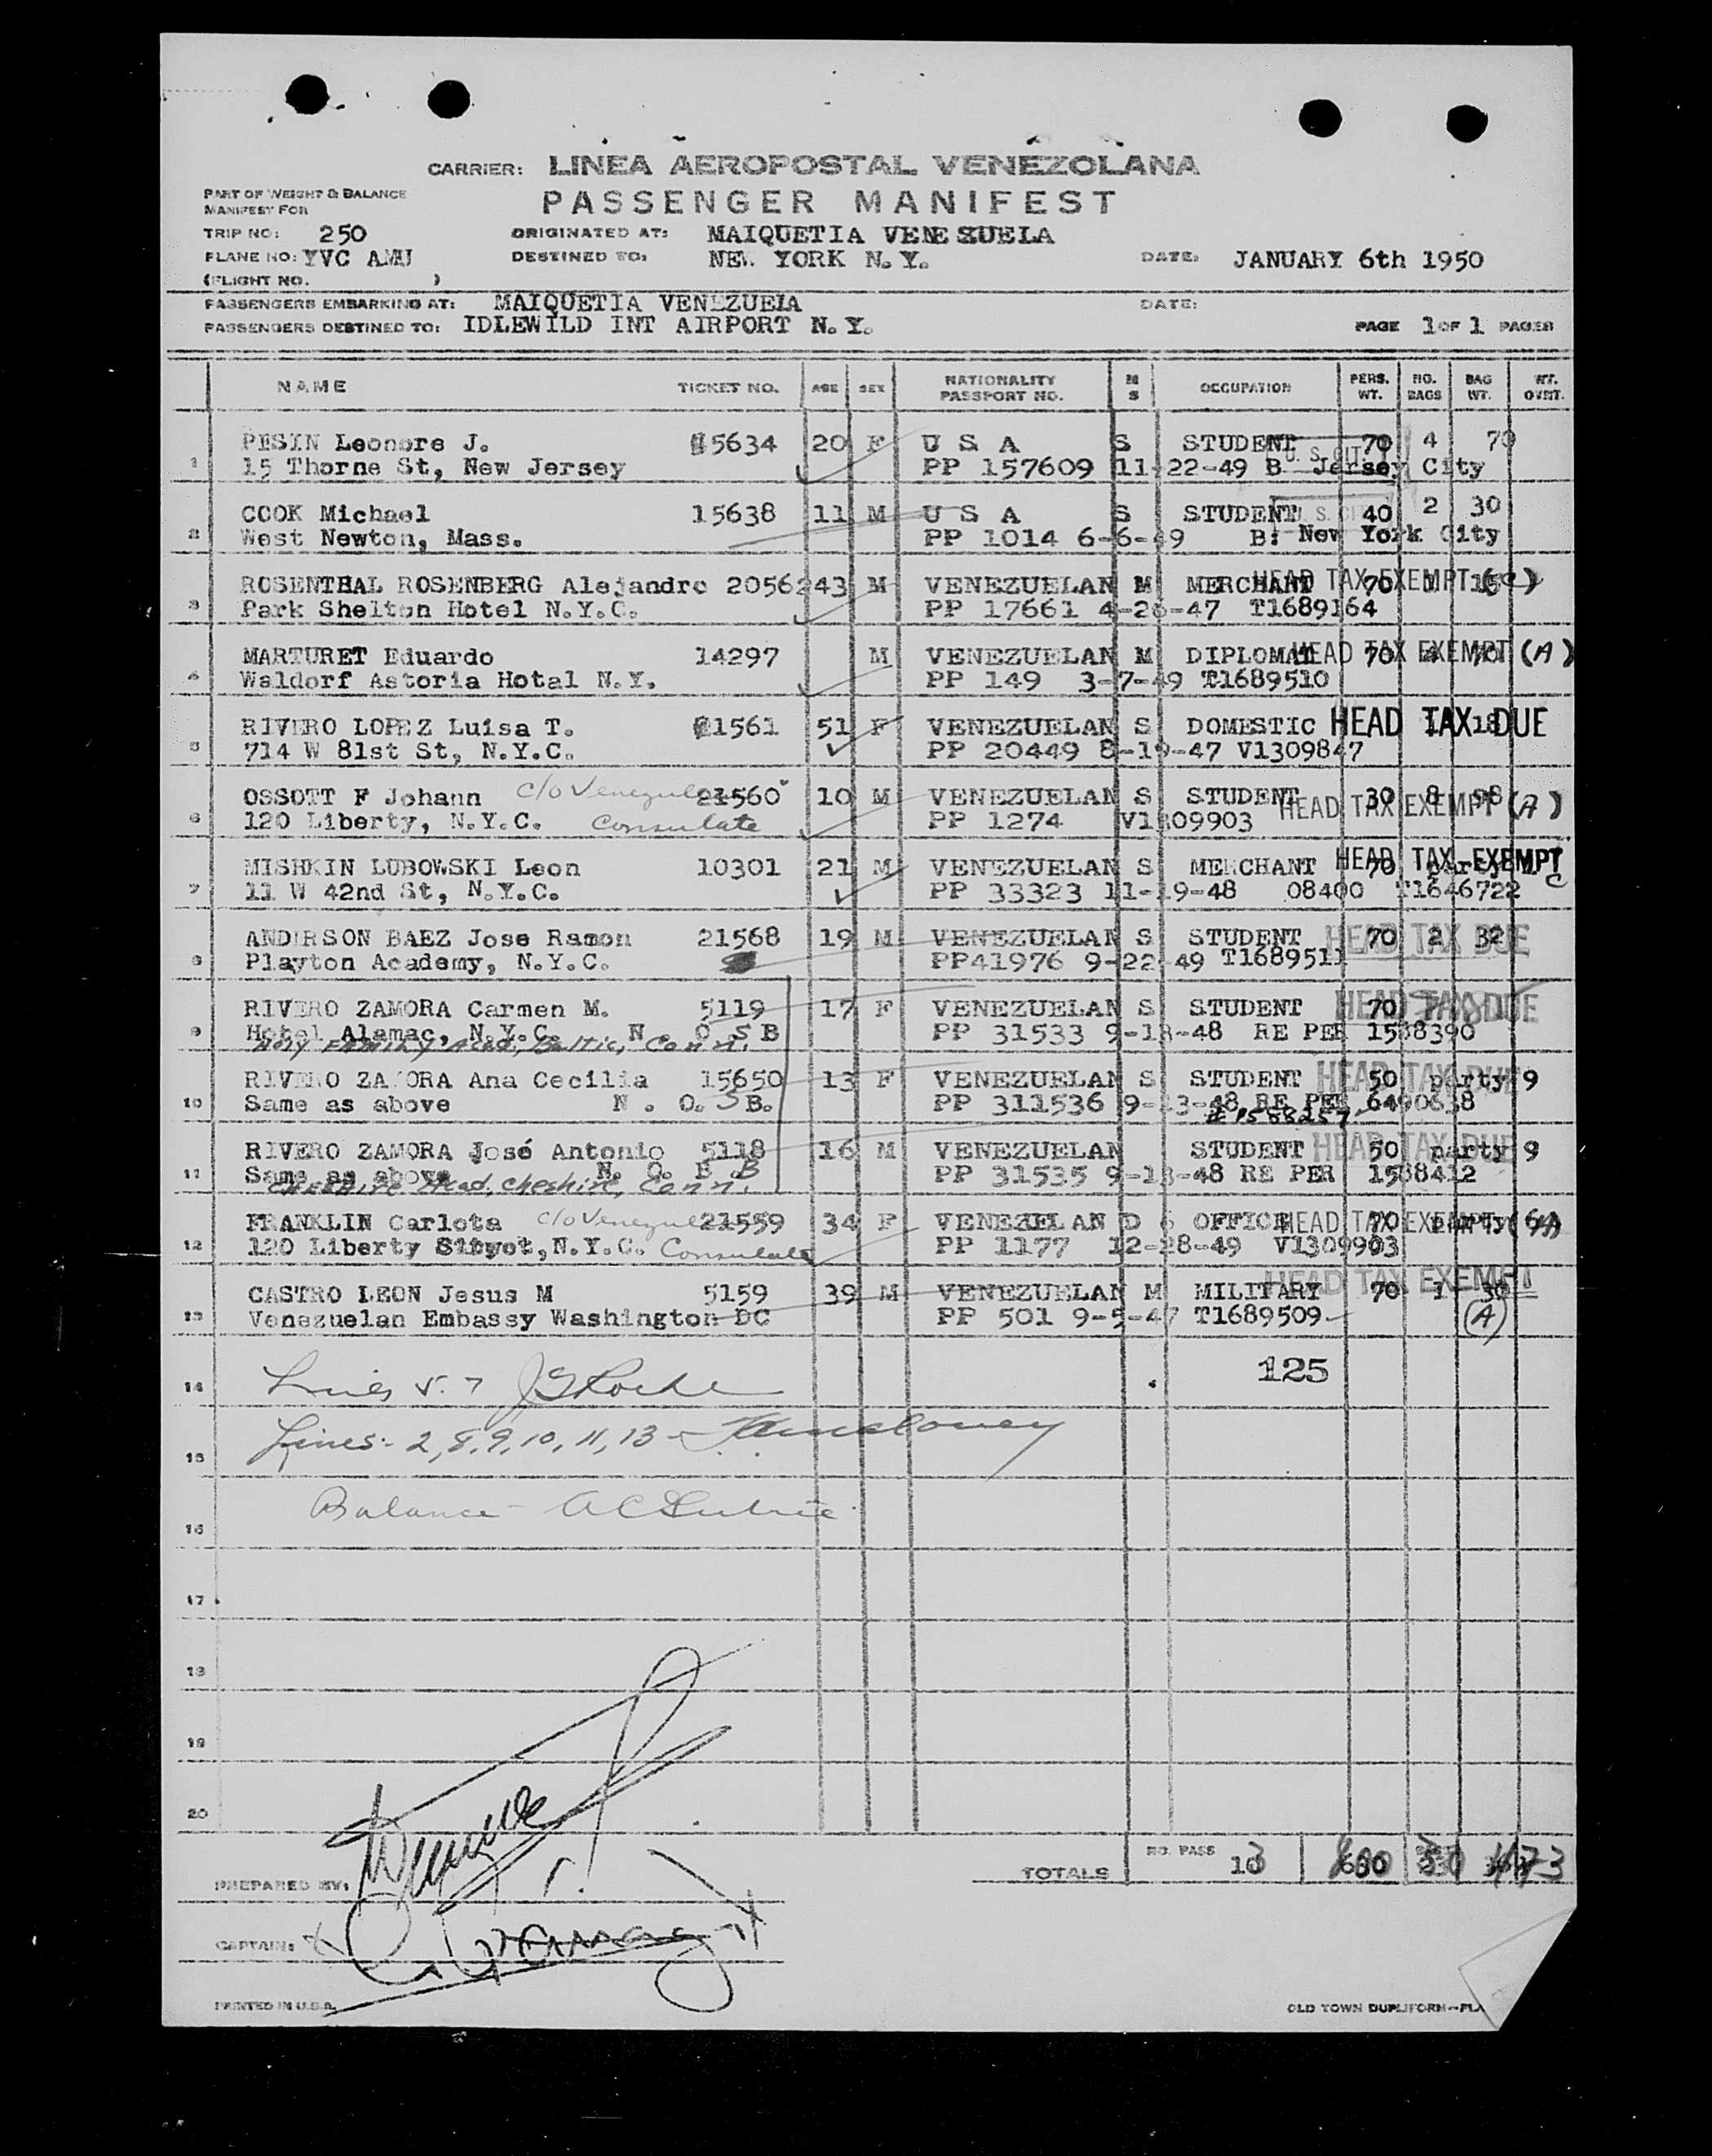 CARRIER: LINEA AEROPOSTAL VENEZOLANA
PART OF WEIGHT & BALANCE
MANIFEST FOR
PASSENGER MANIFEST
TRIP NO: 250 ORIGINATED AT: MAIQUETIA VENEZUELA
PLANE NO: YVC AMU DESTINED TO: NEW YORK N.Y. DATE: JANUARY 6th 1950
(FLIGHT NO. )
PASSENGERS EMBARKING AT: MAIQUETIA VENEZUELA DATE:
PASSENGERS DESTINED TO: IDLEWILD INT AIRPORT N.Y. PAGE 1 OF 1 PAGES
NAME TICKET NO. AGE SEX NATIONALITY PASSPORT NO. M S OCCUPATION PERS. WT. NO. BAGS BAG WT. WT. OVRT.
PESIN Leonore J. 15634 20 F U S A S STUDENT 70 4 70
1 15 Thorne St, New Jersey PP 157609 11-22-49 B Jersey City
U. S. CIT.
COOK Michael 15638 11 M U S A S STUDENT 40 2 30
2 West Newton, Mass. PP 1014 6-6-49 B: New York City
U. S. CIT.
ROSENTHAL ROSENBERG Alejandro 20562 43 M VENEZUELAN M MERCHANT 70 1 HEAD TAX EXEMPT
3 Park Shelton Hotel N.Y.C. PP 17661 4-26-47 T1689164
MARTURET Eduardo 14297 M VENEZUELAN M DIPLOMAT 70 HEAD TAX EXEMPT (A)
4 Waldorf Astoria Hotal N.Y. PP 149 3-7-49 T1689510
RIVERO LOPEZ Luisa T. 21561 51 F VENEZUELAN S DOMESTIC HEAD TAX DUE 18
5 714 W 81st St, N.Y.C. PP 20449 8-19-47 V1309847
OSSOTT F Johann c/o Venezuelan 21560 10 M VENEZUELAN S STUDENT 30 8 98 HEAD TAX EXEMPT (A)
6 120 Liberty, N.Y.C. Consulate PP 1274 V1309903
MISHKIN LUBOWSKI Leon 10301 21 M VENEZUELAN S MERCHANT 70 HEAD TAX EXEMPT C
7 11 W 42nd St, N.Y.C. PP 33323 11-19-48 08400 T1646722
ANDERSON BAEZ Jose Ramon 21568 19 M VENEZUELAN S STUDENT 70 2 32 HEAD TAX DUE
8 Playton Academy, N.Y.C. PP41976 9-22-49 T1689511
RIVERO ZAMORA Carmen M. 5119 17 F VENEZUELAN S STUDENT 70 HEAD TAX DUE
9 Hotel Alamac, N.Y.C. N. O. S B PP 31533 9-13-48 RE PER 1588390
Holy Family Acad, Baltic, Conn.
RIVERO ZAMORA Ana Cecilia 15650 13 F VENEZUELAN S STUDENT 50 party 9 HEAD TAX DUE
10 Same as above N. O. S B. PP 311536 9-13-48 RE PER 6490638
# 1588257
RIVERO ZAMORA José Antonio 5118 16 M VENEZUELAN STUDENT 50 party 9 HEAD TAX DUE
11 Same as above N. O. B B PP 31535 9-13-48 RE PER 1588412
Cheshire Acad, Cheshire, Conn.
FRANKLIN Carlota c/o Venezuelan 21559 34 F VENEZUELAN D OFFICE 70 party HEAD TAX EXEMPT (A)
12 120 Liberty N.Y.C. Consulate PP 1177 12-28-49 V1309903
CASTRO LEON Jesus M 5159 39 M VENEZUELAN M MILITARY 70 1 30 HEAD TAX EXEMPT
13 Venezuelan Embassy Washington DC PP 501 9-5-47 T1689509 (A)
125
14 Lines 5.7 JGRoche
15 Lines - 2, 8, 9, 10, 11, 13 -
16 Balance -
17
18
19
20
TOTALS NO. PASS 13
PREPARED BY:
CAPTAIN:
PRINTED IN U.S.A. OLD TOWN DUPLIFORM